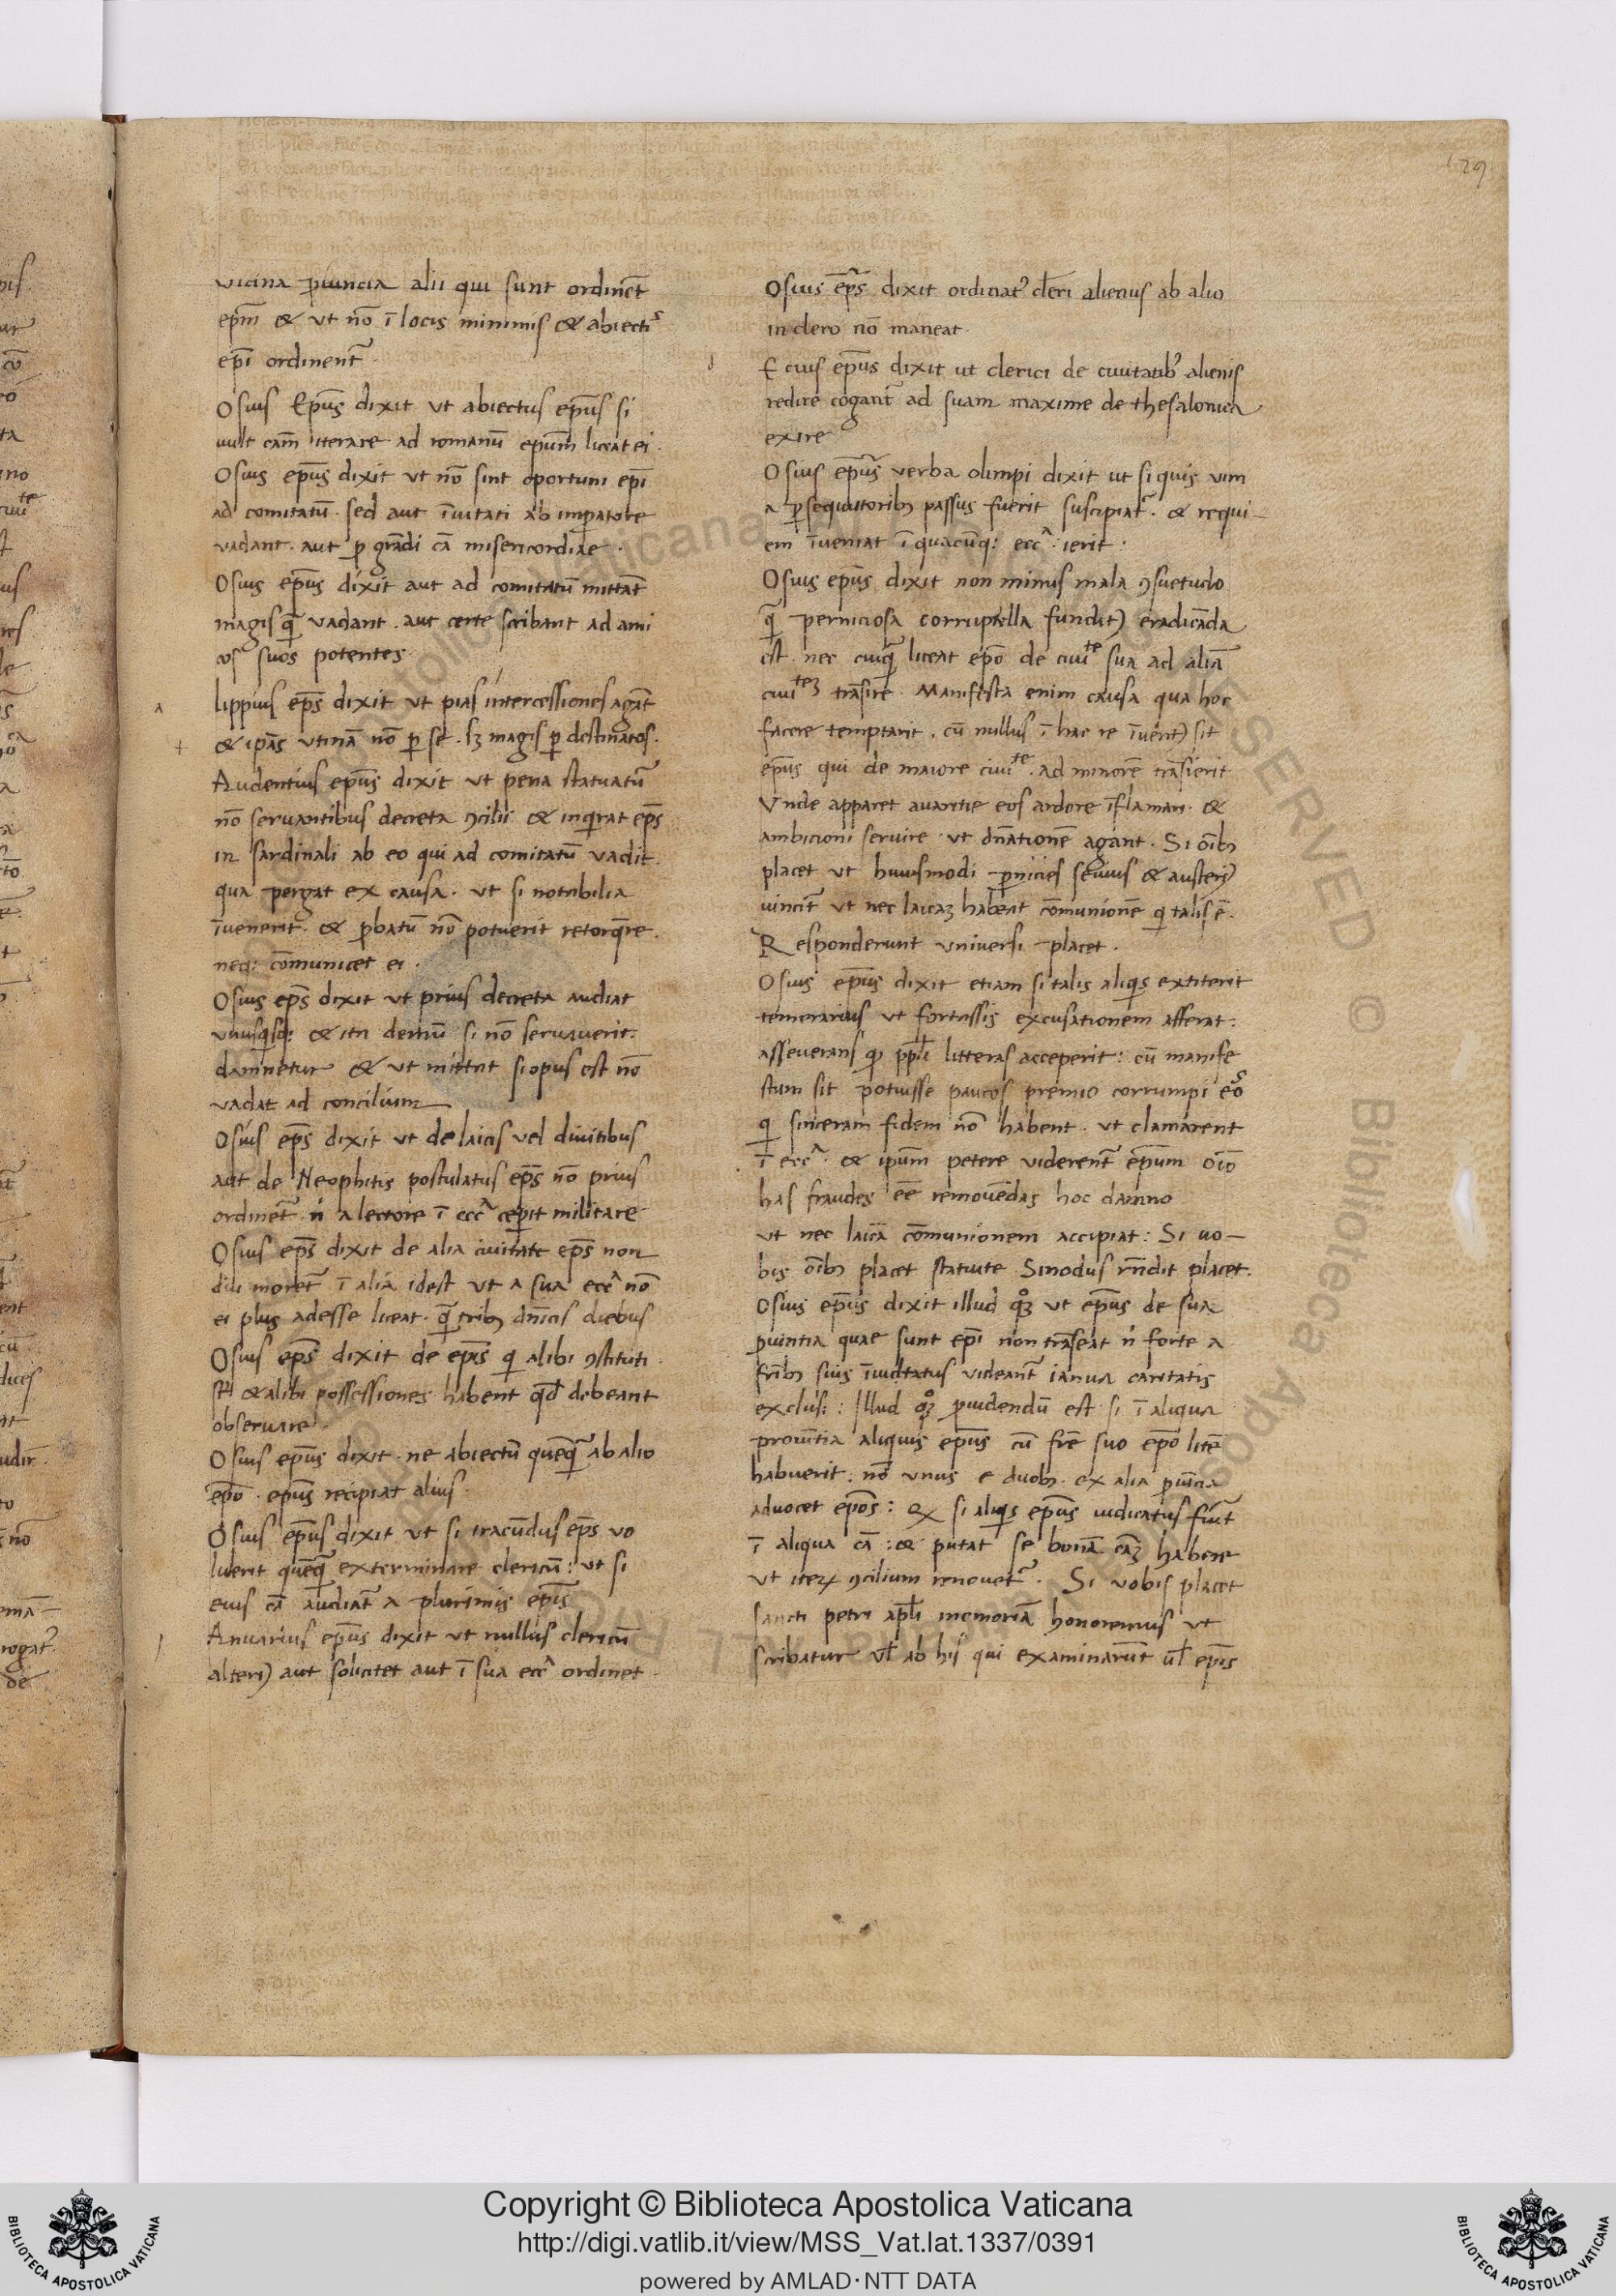 129
vicina ꝓuincia alii qui sunt ordinẽt
ep̃m & ut nõ ĩ locis minimis & abiectis
ep̃i ordinent᷈
Osius Ep̃us dixit ut abiectus ep̃us si
uult cam̃ iterare ad romanũ epium̃ liceat ei.
Osius ep̃us dixit ut nõ sint oportuni ep̃i
ad comitatũ. sed aut ĩuitati ab imperatore
vadant. aut ꝓ grãdi cã misericordiae.
Osius ep̃us dixit aut ad comitatũ mittãt
magis q̃ vadant. aut certe scribant ad ami
cos suos potentes
A
lippius ep̃s dixit ut pias intercessiones agãt
+
& ipãs utinã nõ ꝑ se. sꝫ magis ꝑ destinatos.
Audentius ep̃us dixit ut pena statuatũ
nõ seruantibus decreta ꝯcilii & inqirat ep̃s
in sardinali ab eo qui ad comitatũ vadit.
qua pergat ex causa. ut si notabilia
ĩvenerit. & ꝓbatũ nõ potuerit retorq̃re.
neq; cõmunicet ei.
Osius ep̃s dixit ut prius decreta audiat
vnusqisq; & ita demũ si nõ seruauerit.
damnetur & ut mittat si opus est nõ
vadat ad concilium
Osius ep̃s dixit ut de laicis vel diuitibus
aut de Neophitis postulatus ep̃s nõ prius
ordinet᷈ ñ a lectore ĩ ecc̃a ceperit militare
Osius ep̃s dixit de alia ciuitate ep̃s non
diu moret᷈ ĩ alia idest ut a sua ecc̃a nõ
ei plus adesse liceat. q̃ trib; dñicis diebus
Osius ep̃s dixit de ep̃is qi alibi ꝯstituti.
st̃ & alibi possessiones habent qd̃ debeant
obseruare.
Osius ep̃us dixit. ne abiectũ quẽq̃ ab alio
ep̃o. ep̃us recipiat alius.
Osius ep̃us dixit ut si iracũdus ep̃s vo
luerit quẽq̃ exterminare clericũ: ut si
eius cã audiat᷈ a plurimis ep̃is
Anuarius ep̃us dixit ut nullus clericũ
alteri) aut solicitet aut ĩ sua ecc̃a ordinet.
Osius ep̃s dixit ordinat᷈ cleri alienus ab alio
in clero nõ maneat.
E cius ep̃us dixit ut clerici de ciuitatib᷈ alienis
redire cogant᷈ ad suam maxime de thesalonica
exire
Osius ep̃us verba olimpi dixit ut si quis vim
a ꝑsequutorib; passus fuerit suscipiat᷈. & requi-
em ĩveniat ĩ quacũq; ecc̃a. ierit.
Osius ep̃us dixit non minus mala ꝯsuetudo
q̃ perniciosa corruptella fundit᷈) eradicãda
est. nec cuiq̃ liceat ep̃o de ciuite sua ad aliã
ciuiteꝫ trãsire. Manifesta enim causa qua hoc
facere temptarit. cũ nullus ĩ hac re ĩvent᷈) sit
ep̃us qui de maiore ciuite. ad minorẽ trãsierit
Vnde apparet auaritie eos ardore ĩflamari. &
ambicioni seruire. ut dñationẽ agant. Si oĩb;
placet ut huiusmodi ꝑnicies seuius & austeri)
uincit᷈ ut nec laicaꝫ habeat cõmunionẽ qi talis ẽ.
Responderunt vniuersi placet.
Osius ep̃us dixit etiam si talis aliqis extiterit
temerarius ut fortassis excusationem afferat:
asseuerans qꝫ ppl̃i litteras acceperit: cũ manife
stum sit potuisse paucos premio corrumpi eos
qi sinceram fidem nõ habent. ut clamarent
ĩ ecc̃a. & ipum̃ petere viderent᷈ ep̃um oĩo
has fraudes eẽ remouẽdas hoc damno
ut nec laicã cõmunionem accipiat: Si uo-
bis oĩb; placet statuite. Sinodus rñdit placet.
Osius ep̃us dixit illud qoꝫ ut ep̃us de sua
ꝓuintia quae sunt ep̃i non trãseat ñ forte a
frĩb; suis ĩuitatus videant᷈ ianua caritatis
exclusi: Illud qoꝫ ꝓuidendũ est si ĩ aliqua
prouĩtia aliquis ep̃us cũ frẽ suo ep̃o litẽ
habuerit. nõ vnus e duob;. ex alia ꝓuĩcia
aduocet ep̃os: Ꝙ si aliqis ep̃us iudicatus fuĩt
ĩ aliqua cã: & putat se bonã cãꝫ habere
ut iterꝝ ꝯcilium renouet᷈. Si vobis placet
sancti petri apl̃i memoriã honoremus ut
scribatur ul̃ ab his qui examinarũt ul̃ ep̃is
Copyright © Biblioteca Apostolica Vaticana
http://digi.vatlib.it/view/MSS_Vat.lat.1337/0391
powered by AMLAD·NTT DATA
BIBLIOTECA APOSTOLICA VATICANA
BIBLIOTECA APOSTOLICA VATICANA